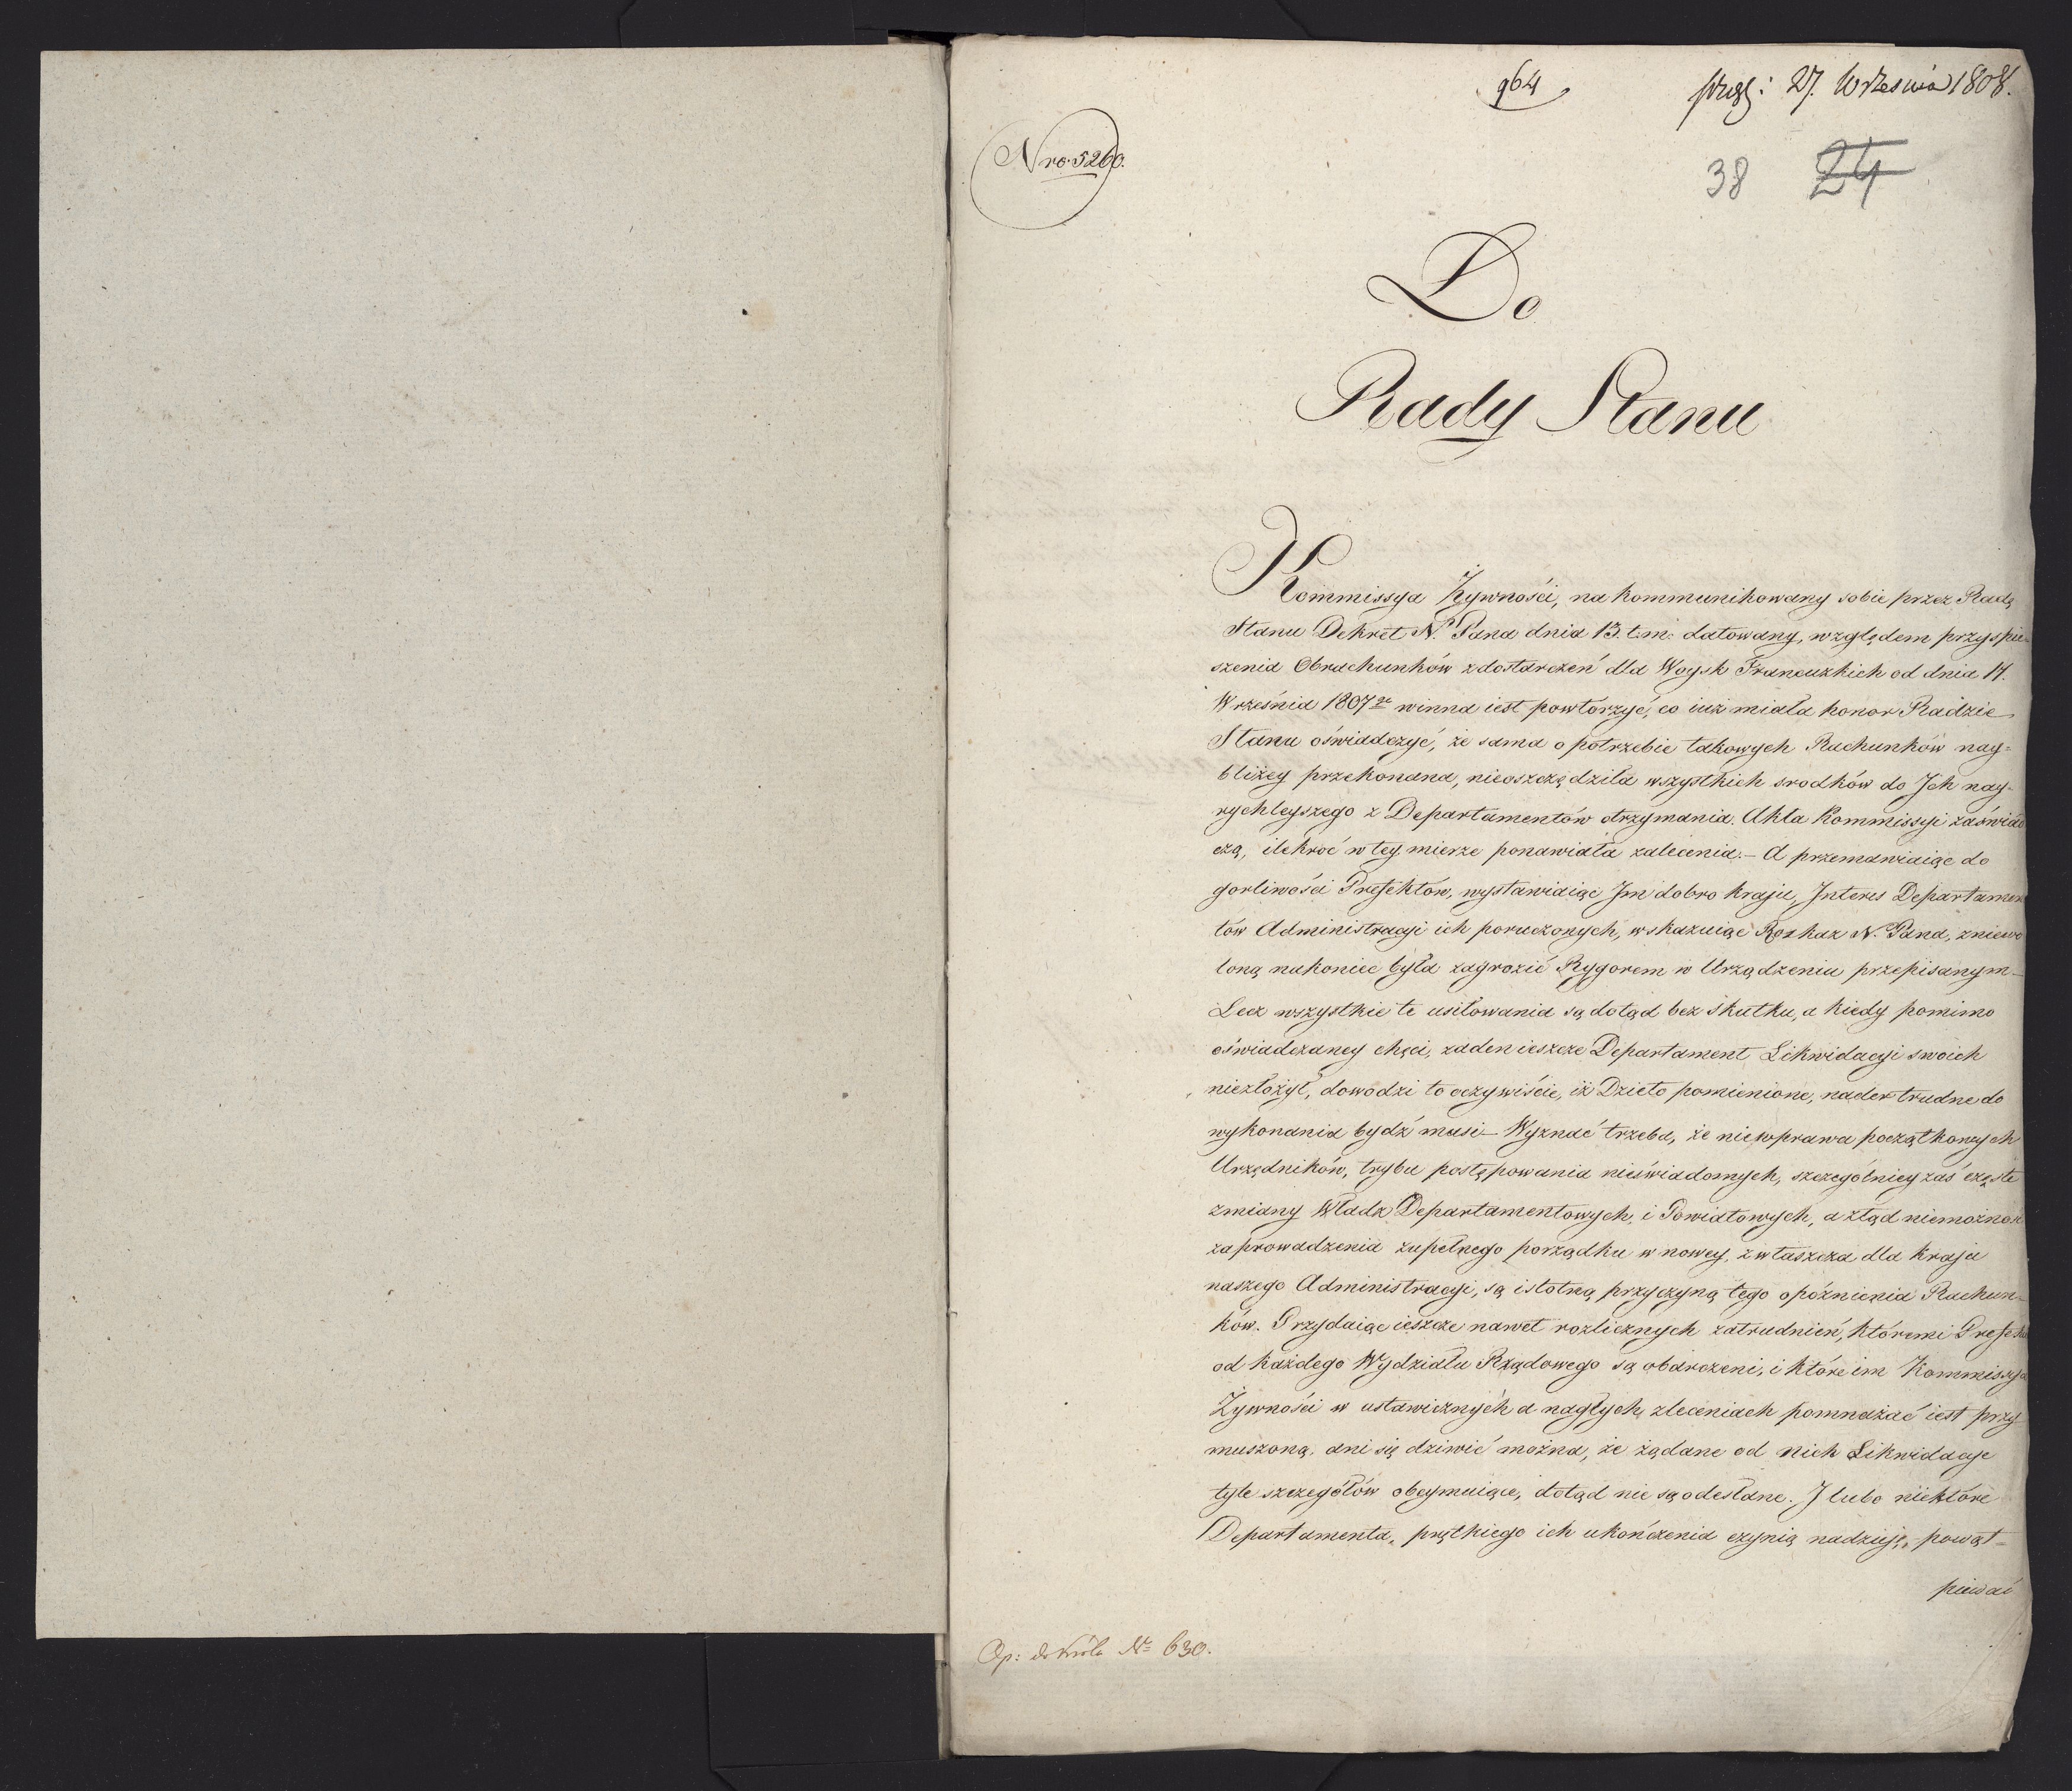 964
27. Września 1808.
Nro. 5260.
38 24
Do
Rady Stanu
Kommissya Żywności, na kommunikowany sobie przez Radę
Stanu Dekret N. Pana dnia 13. t. m. datowany, względem przyspie-
szenia Obrachunków z dostarczeń dla Woysk Francuzkich od dnia 14.
Września 1807 winna iest powtórzyć, co iuż miała honor Radzie
Stanu oświadczyć, że sama o potrzebie takowych Rachunków nay-
bliżey przekonana, nieoszczędziła wszystkich srodków do Jch nay-
rychleyszego z Departamentów otrzymania. Akta Kommissyi zaświad
czą, ilekroć w tey mierze ponawiała zalecenia. – A przemawiaiąc do
gorliwości Prefektów, wystawiaiąc Jm dobro kraju, Jnteres Departamen
tów Administracyi ich poruczonych, wskazuiąc Rozkaz N. Pana, zniewo
loną nakoniec była zagrozić Rygorem w Urządzeniu przepisanym –
Lecz wszystkie te usiłowania są dotąd bez skutku, a kiedy pomimo
oświadczaney chęci, żaden ieszcze Departament Likwidacyi swoich
niezłożył, dowodzi to oczywiście, iż Dzieło pomienione, nader trudne do
wykonania bydź musi – Wyznać trzeba, że niewprawa początkowych
Urzędników, trybu postępowania nieświadomych, szczególniey zaś częste
zmiany Władz Departamentowych, i Powiatowych, a ztąd niemożnoś
zaprowadzenia zupełnego porządku w nowey, zwłaszcza dla kraju
naszego Administracyi, są istotną przyczyną tego opóźnienia Rachun-
ków. Przydaiąc ieszcze nawet rozlicznych zatrudnień, któremi Prefekci
od każdego Wydziału Rządowego są obarczeni, i które im Kommissya
Żywności w ustawicznych a nagłych zleceniach pomnażać iest przy
muszoną, ani się dziwić można, że żądane od nich Likwidacye
tyle szczegółów obeymuiące, dotąd nie są odesłane. J lubo niektóre
Departamenta, prętkiego ich ukończenia czynią nadzieję, powąt-
piewać
Op: do Króla Nr. 630.